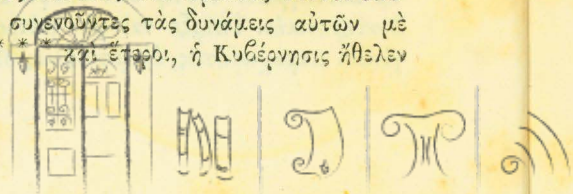 συνενοῦντες τὰς δυνάμεις αὐτῶν μὲ
καὶ ἕτεροι, ἡ Κυβέρνησις ἤθελεν